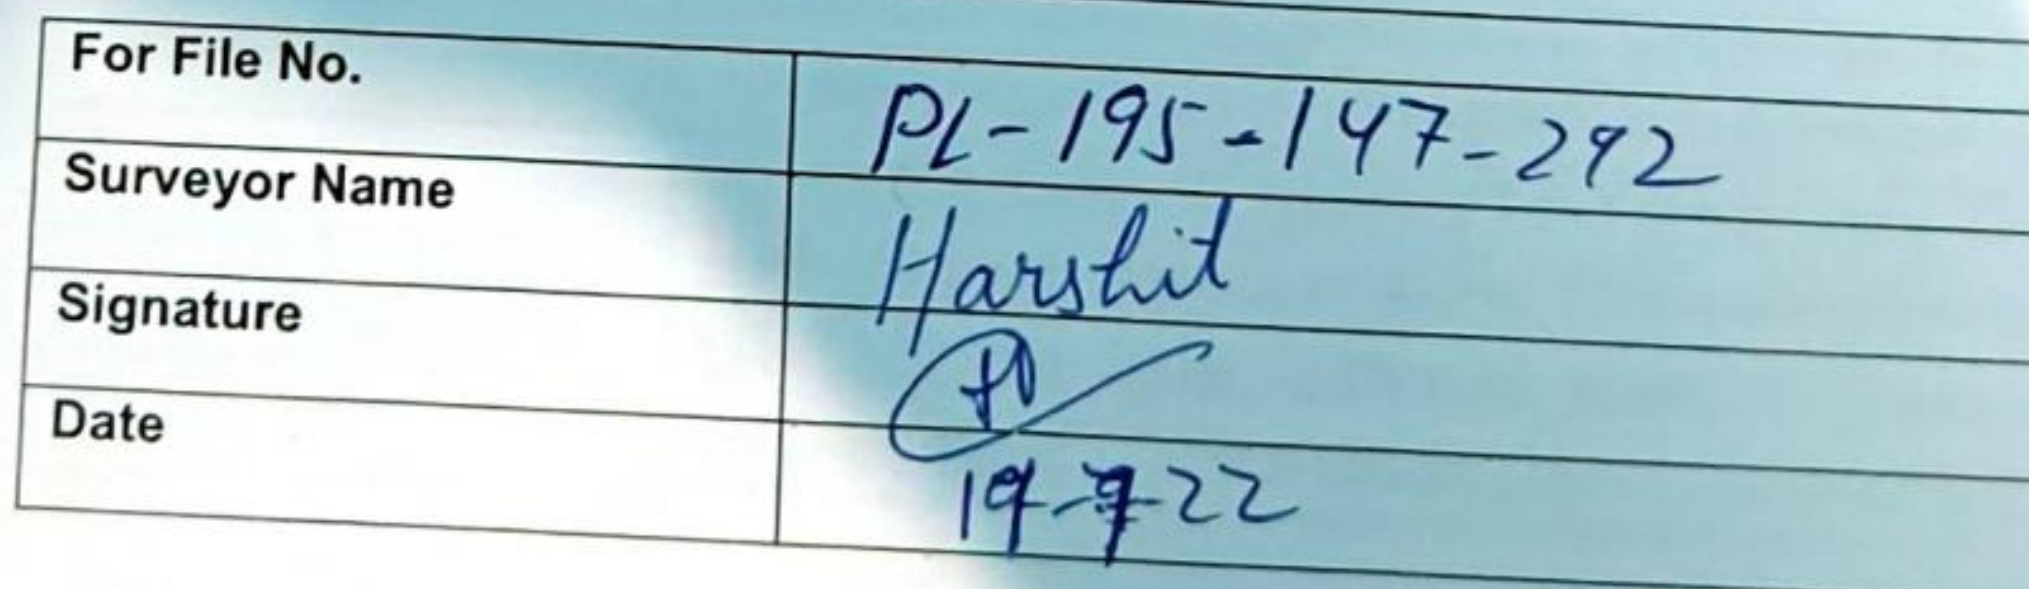 For File No. PL-195-147-292
Surveyor Name Harshit
Signature
Date